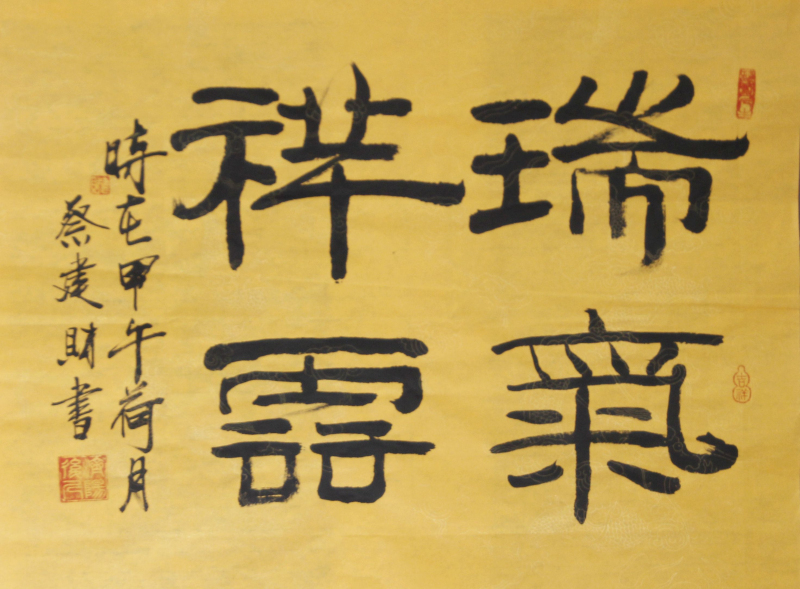 瑞氣
祥雲
時在甲午荷月
蔡建財書